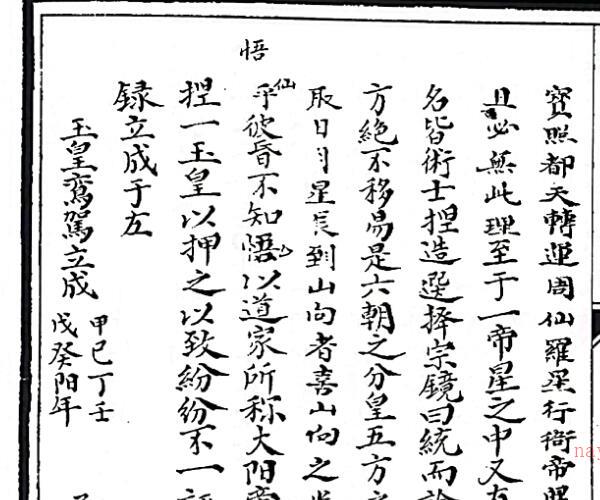 寶照都天轉運周仙羅星行衙帝
且必無此理至于一帝星之中又有
名皆術士揑造選擇宗鏡曰統而論
方絶不移易是六朝之分皇五方之
取日月星辰到山向者喜山向之光
悟
仙
乎彼昏不知悟以道家所称大阳帝
揑一玉皇以押之以致紛紛不一
録立成于左
玉皇鸞駕立成
甲己丁壬
戊癸阳年